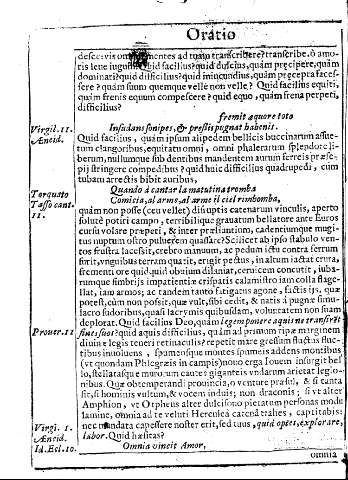 Oratio
desce: vis omnes mentes ad tuam transcribere? transcribe. ô amo-
ris leue iugum! Quid facilius? quid dulcius, quàm præcipere, quàm
dominari? quid difficilius? quid iniucundius, quàm præcepta faces-
sere? quàm suum quemque velle non velle? Quid facilius equiti,
quàm frenis equum compescere? quid equo, quàm frena perpeti,
difficilius?
fremit æquore toto
Virgil. 11.
Æneid.
Insultans sonipes, & pressis pugnat habenis.
Quid facilius, quàm ipsum alipedem bellicis buccinarum assue-
tum clangoribus, equitatu omni, omni phalerarum splendore li-
berum, nullumque sub dentibus mandentem aurum ferreis præse-
pij stringere compedibus? quid huic difficilius quadrupedi, cum
tubam arrectis bibit auribus,
Torquato
Tasso cant.
11.
Quando à cantar la matutina tromba
Comincia, al arme, al arme il ciel rimbomba,
quàm non posse (ceu vellet) disruptis catenarum vinculis, aperto
solutè potiri campo, terribilique grauatum bellatore ante Euros
cursu volare præpeti, & inter præliantium, cadentiumque mugi-
tus nuptum ostro puluerem quassare? Scilicet ab ipso stabulo ven-
tos frustra lacessit, crebro manuum, ac pedum ictu contra ferrum
furit, vnguibus terram quatit, erigit pectus, in altum iactat crura,
frementi ore quidquid obuium dilaniat, ceruicem concutit, iuba-
rumque fimbrijs impatientiæ crispatis calamistro iam colla flagel-
lat, iam armos; ac tandem tanto fatigatus agone, factis ijs, quæ
potest, cùm non possit, quæ vult, sibi cedit, & natis à pugnæ simu-
lacro sudoribus, quasi lacrymis quibusdam, voluntatem non suam
deplorat. Quid facilius Deo, quàm legem ponere aquis ne transirent
Prouer. 11
fines suos? quid aquis difficilius, quàm ad primum ripæ marginem
diuinæ legis teneri retinaculis? repetit mare gressum fluctus fluc-
tibus inuoluens, spumosque montes spumeis addens montibus
(vt quondam Phlegræis in campis) nouo erga Iouem insurgit bel-
lo, stellatasque murorum cautes giganteis vndarum arietat legio-
nibus. Quæ obtemperandi prouincia, o venture præsul, & si tanta
sit, si hominis vultum, & vocem induis; non draconis; si vt alter
Amphion, vt Orpheus alter dulcisono pietatum personas modu-
lamine, omnia ad te veluti Herculea catena trahes, captitabis:
Virg. 1.
Æneid.
nec mandata capessere noster erit, sed tuus, quid optes, explorare,
labor. Quid hæsitas?
Id. Ecl. 10.
Omnia vincit Amor,
omnia